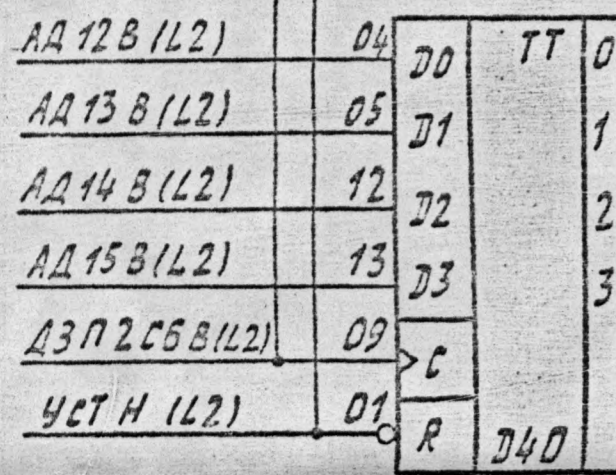 АД 12 В (L2) 04 D0 TT 0
АД 13 В (L2) 05 D1 1
АД 14 В (L2) 12 D2 2
АД 15 В (L2) 13 D3 3
ДЗП2СБВ(L2) 09 C
УСТ Н (L2) 01 R D40